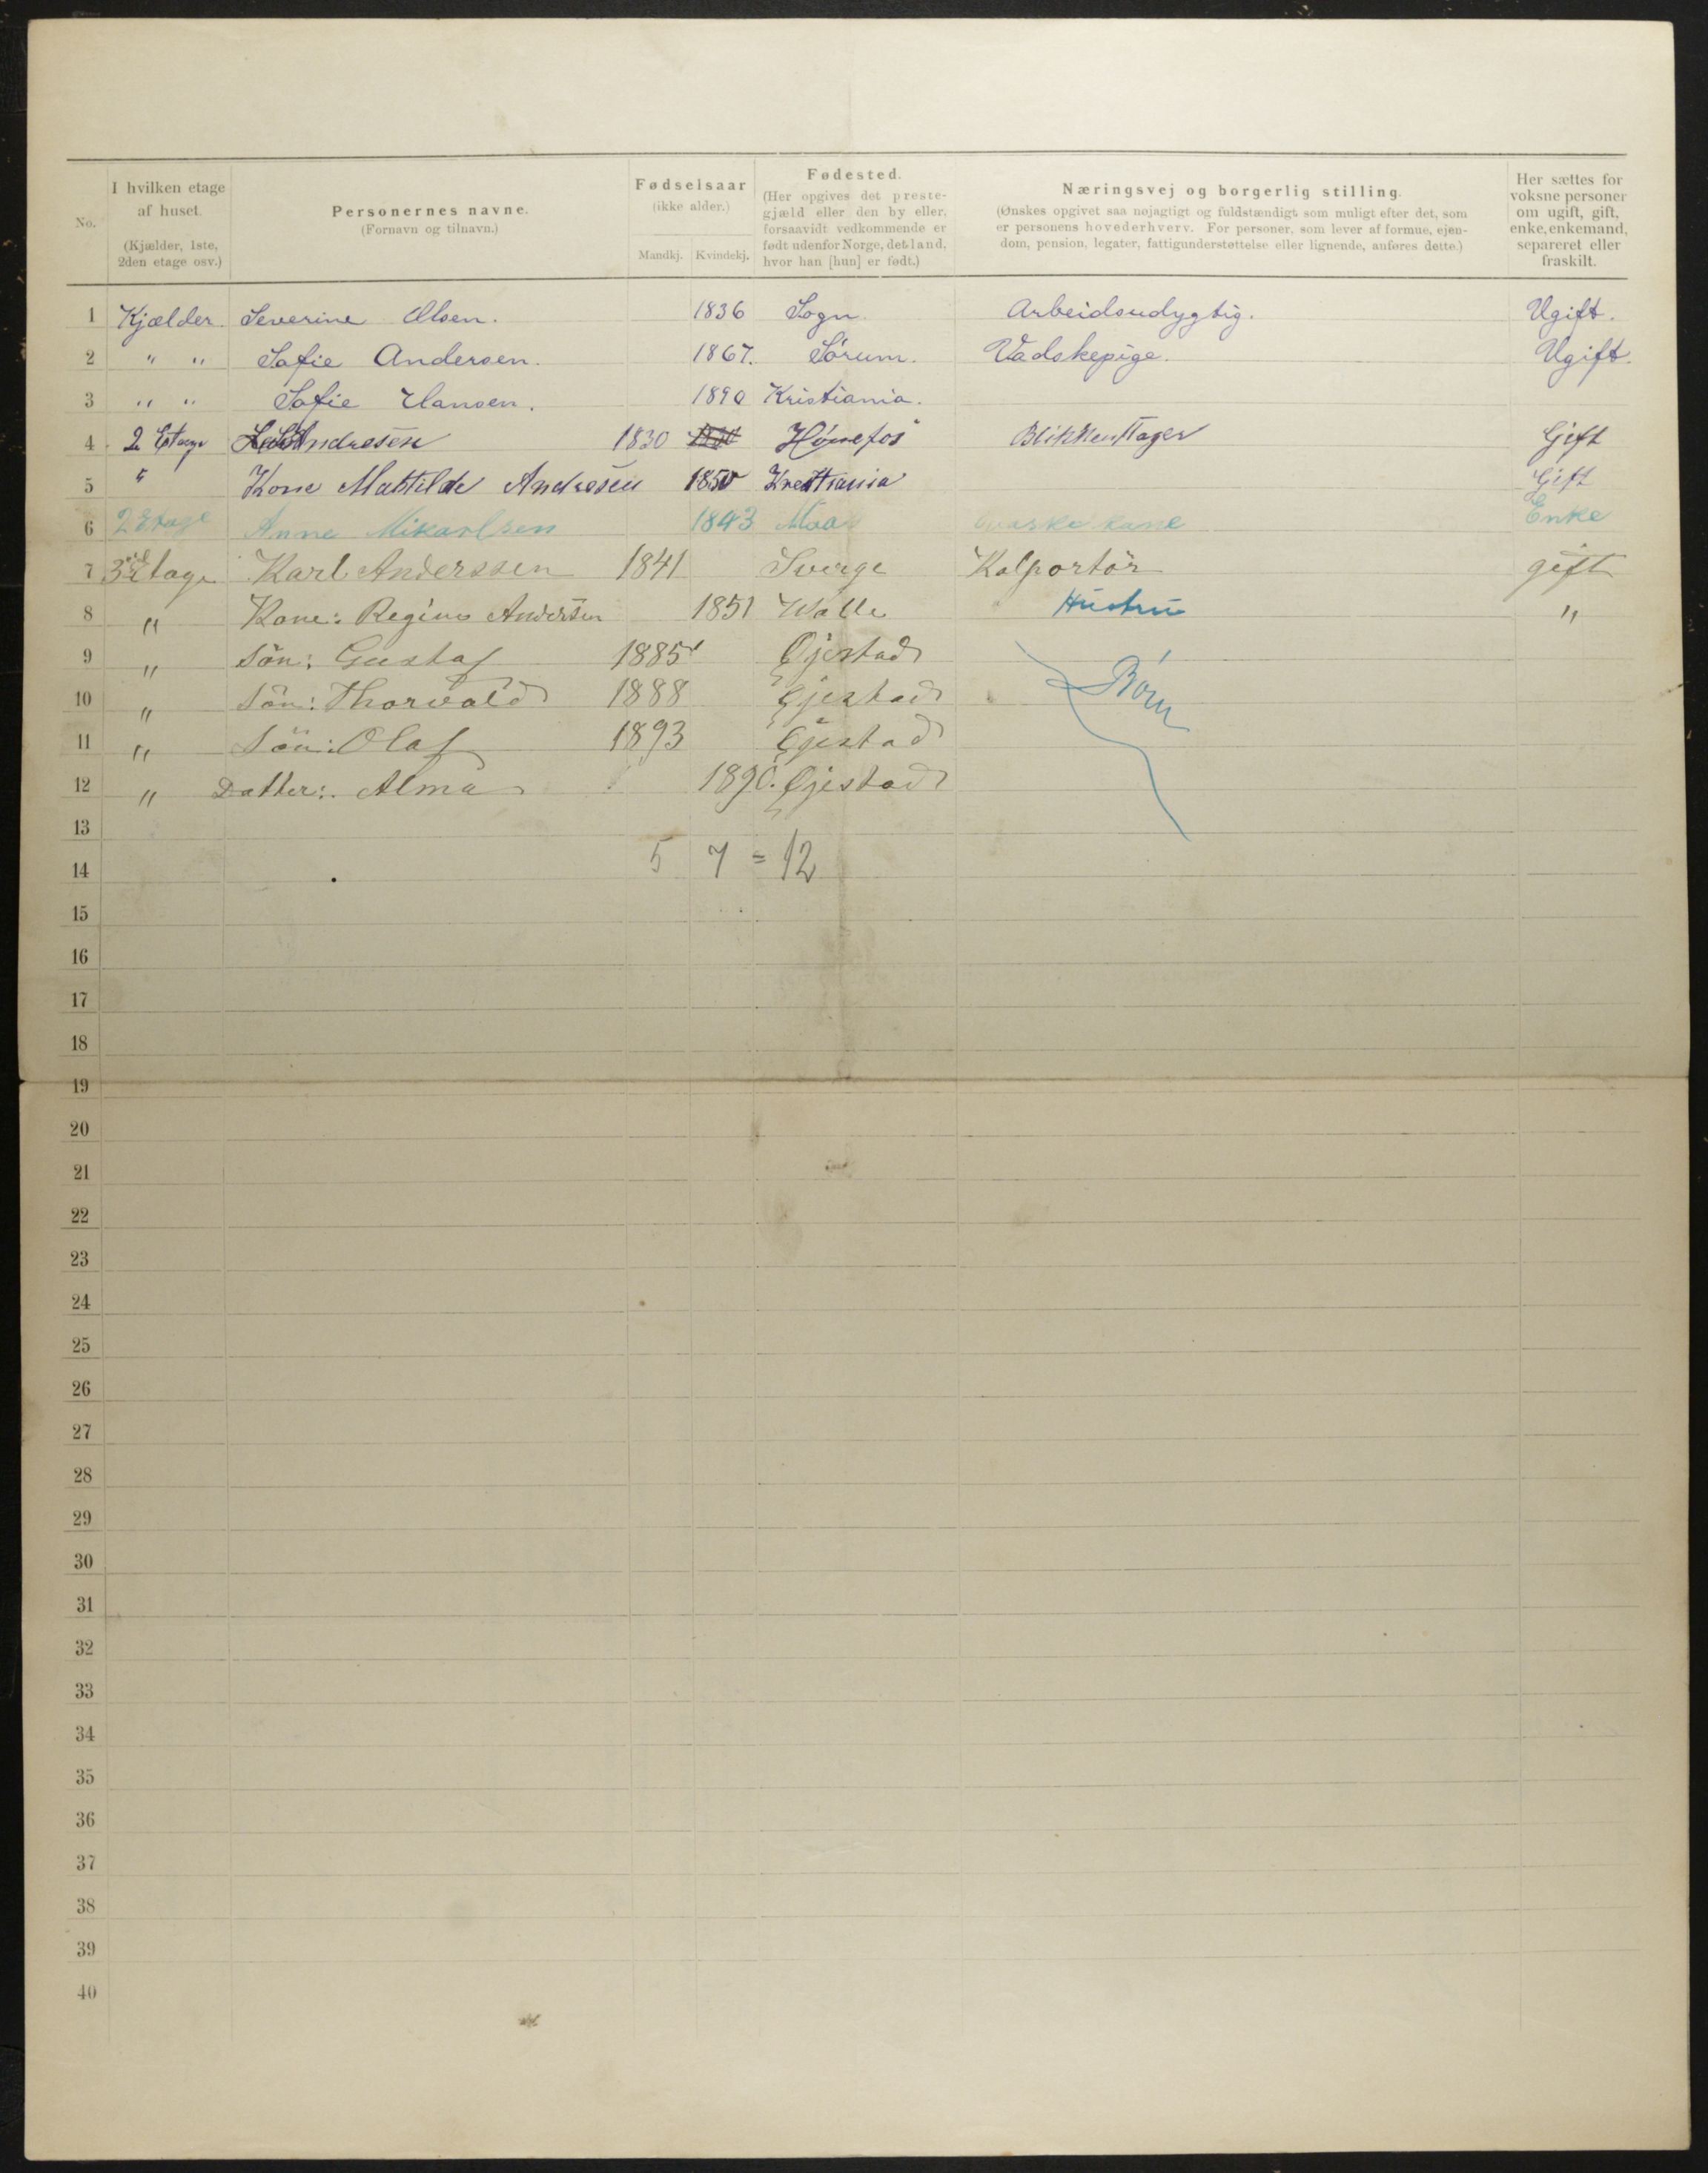 No.
I hvilken etage
af huset.
(Kjælder, 1ste,
2den etage osv.)
Personernes navne.
(Fornavn og tilnavn.)
Fødselsaar
(ikke alder.)
Mandkj. Kvindekj.
Fødested.
(Her opgives det preste-
gjæld eller den by eller,
forsaavidt vedkommende er
født udenfor Norge, det land,
hvor han [hun] er født.)
Næringsvej og borgerlig stilling.
(Ønskes opgivet saa nøjagtigt og fuldstændigt som muligt efter det, som
er personens hovederhverv. For personer, som lever af formue, ejen-
dom, pension, legater, fattigunderstøttelse eller lignende, anføres dette.)
Her sættes for
voksne personer
om ugift, gift,
enke, enkemand,
separeret eller
fraskilt.
1 Kjælder Severine Olsen. 1836 Sogn. Arbeidsudygtig. Ugift.
2 " " Sofie Andersen. 1867. Sörum. Vadskepige. Ugift.
3 " " Sofie Hansen. 1890 Kristiania.
4 2 Etage Andresen 1830 Hönefos Gift
5 " Kone Mathilde Andresen 1850 Gift
6 2 Etage Anne Mikarlsen 1843 Moa vaske kone Enke
7 3die Etage Karl Anderssen 1841 Sverge Kolportör gift
8 " Kone: Regine Anderssen 1851 Walle Hustru "
9 " Sön: Gustaf 1885 Øjestad
10 " Sön: Thorvald 1888 Øjestad Börn
11 " Sön: Olaf 1893 Øjestad
12 " Datter: Alma 1890. Øjestad
13
5 7 = 12
14
15
16
17
18
19
20
21
22
23
24
25
26
27
28
29
30
31
32
33
34
35
36
37
38
39
40